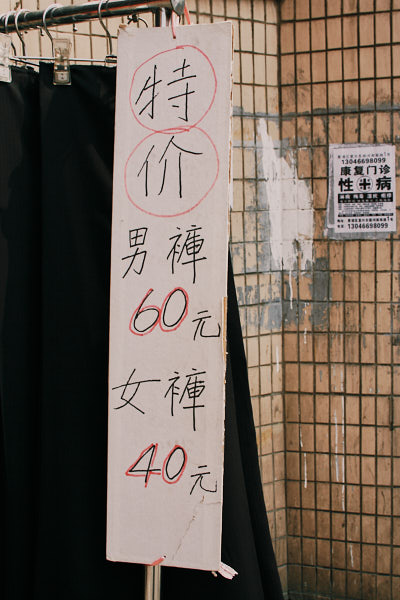 特
价
男褲
60元
女褲
40元
13046698099
康复门诊
性病
13046698099